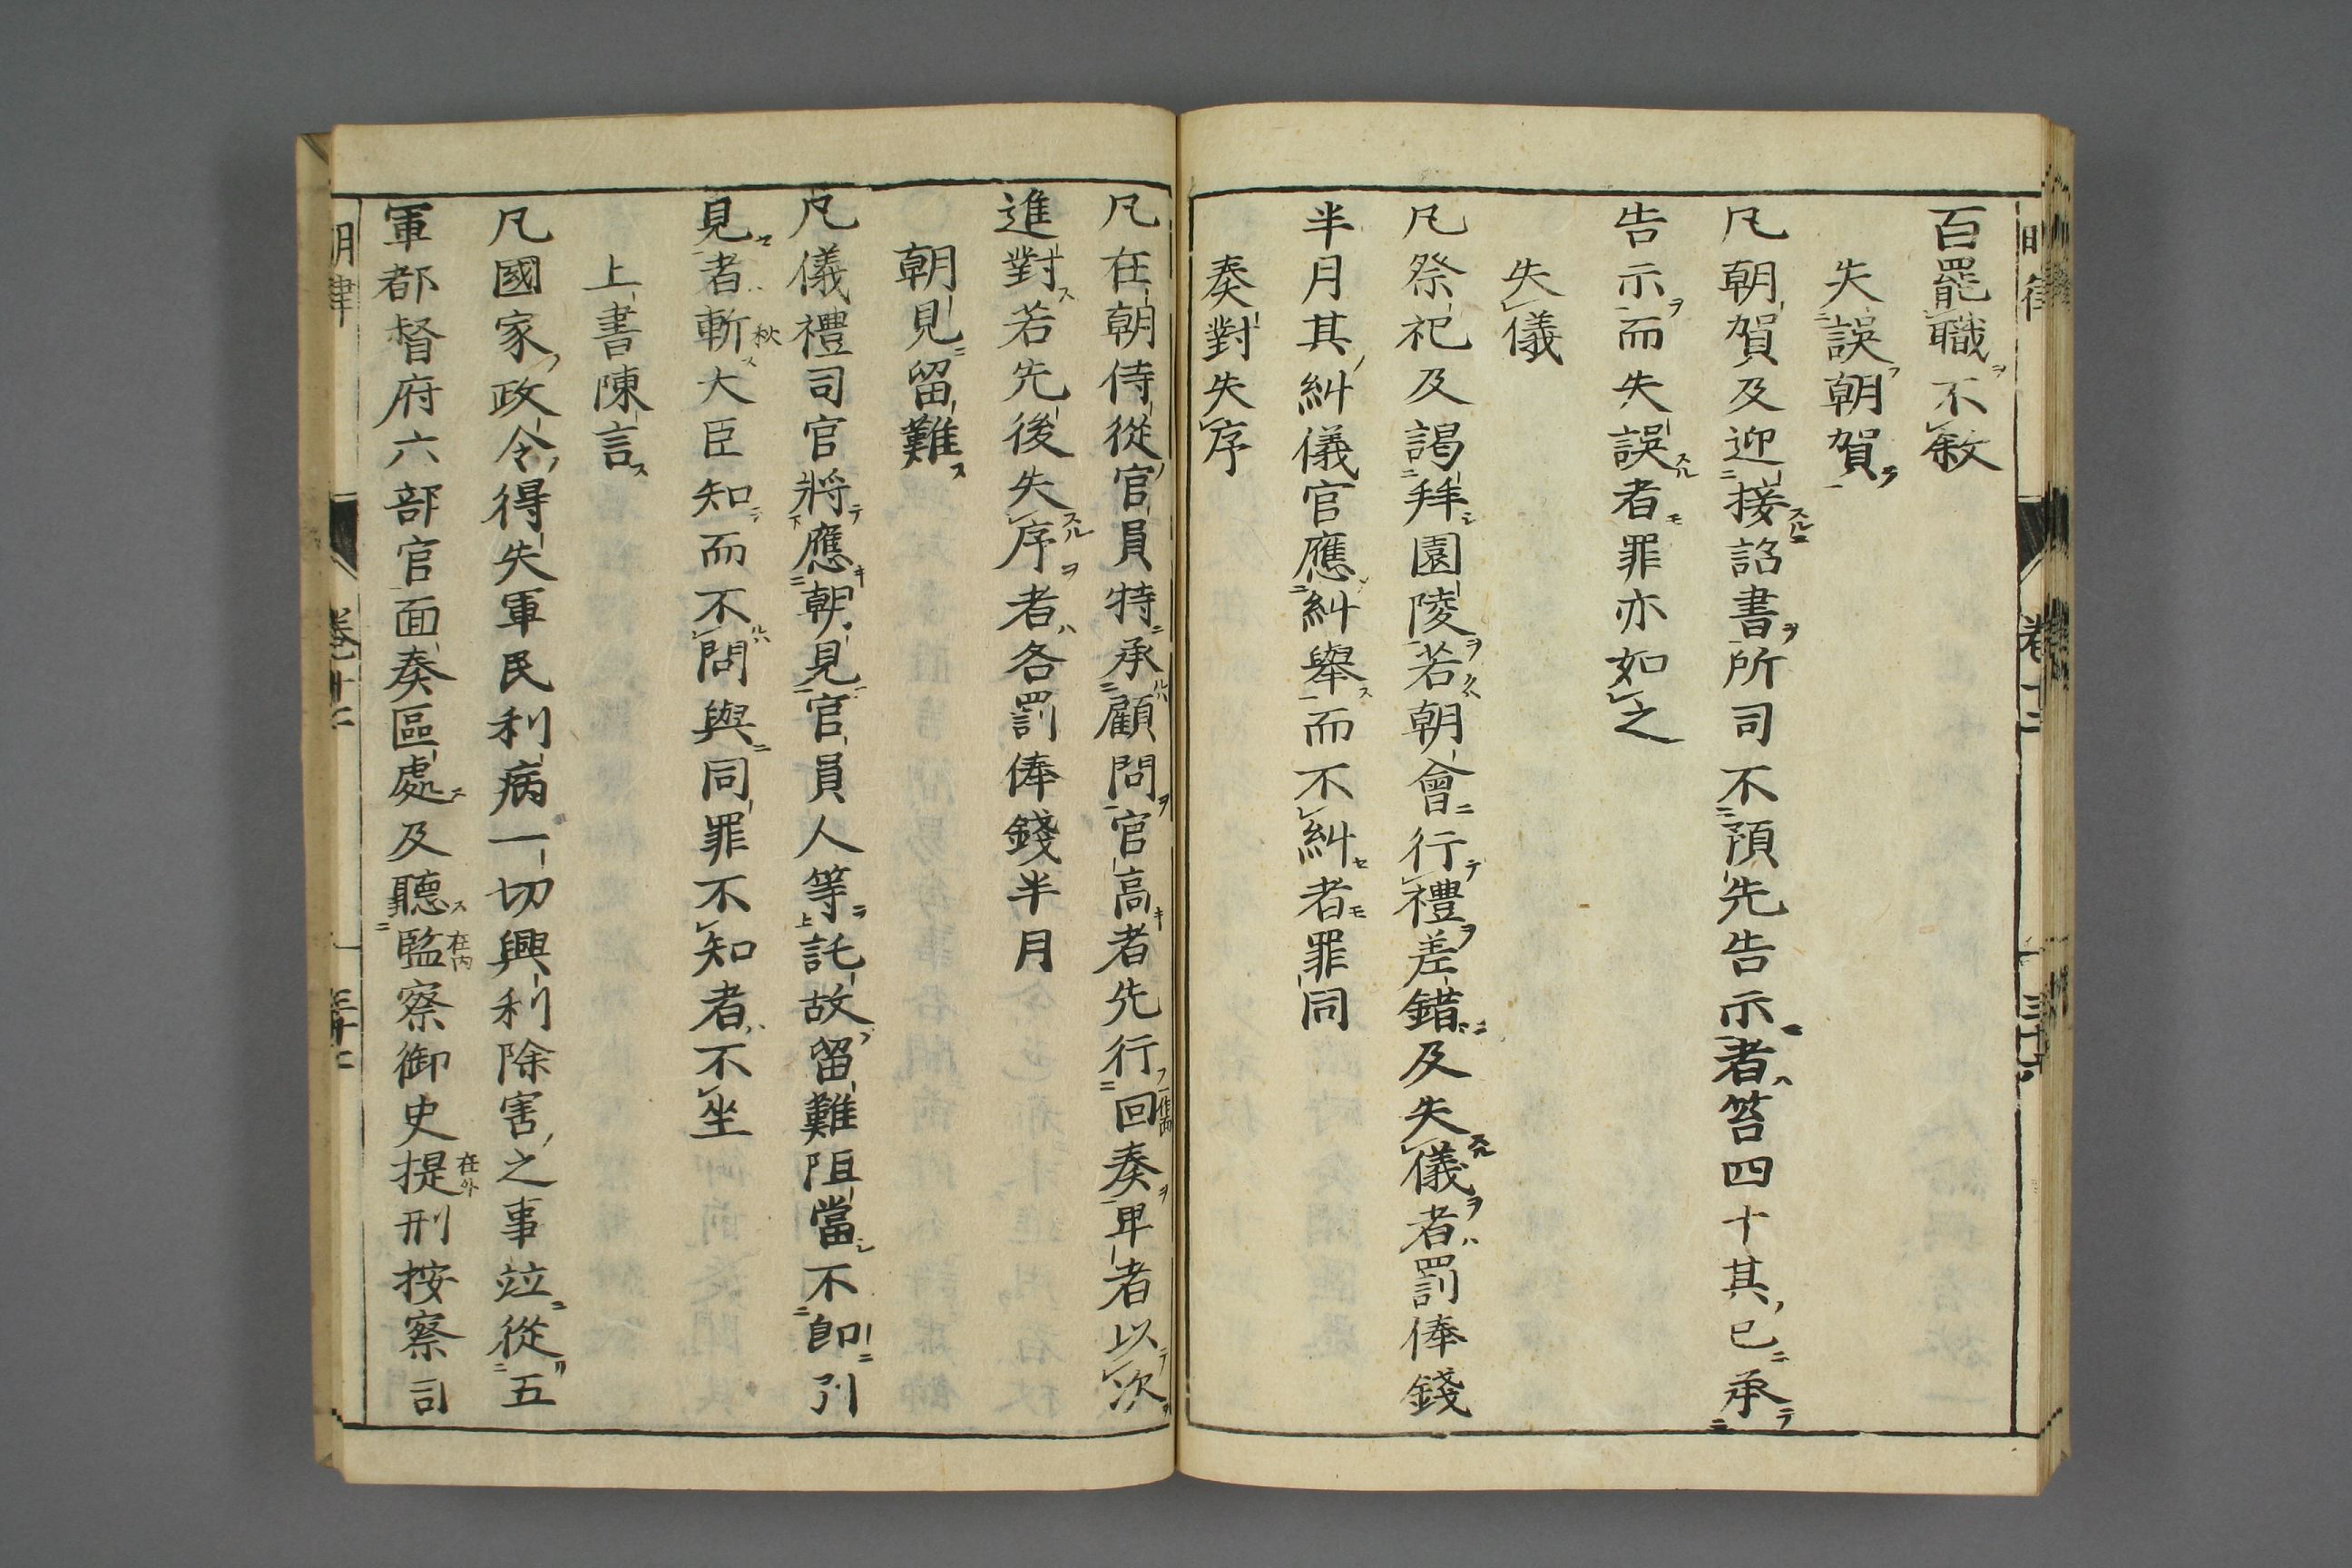 百罷職不敘
失誤朝賀
凡朝賀及迎接詔書所司不預先告示者笞四十其已承
告示而失誤者罪亦如之
失儀
凡祭祀及謁拜園陵若朝會行禮差錯及失儀者罰俸錢
半月其糾儀官應糾舉而不糾者罪同
奏對失序
凡在朝侍從官員特承顧問官高者先行回奏卑者以次
進對若先後失序者各罰俸錢半月
朝見留難
凡儀禮司官將應朝見官員人等託故留難阻當不即引
見者斬秋大臣知而不問與同罪不知者不坐
上書陳言
凡國家政令得失軍民利病一切興利除害之事竝從五
軍都督府六部官面奏區處及聽在内監察御史在外提刑按察司